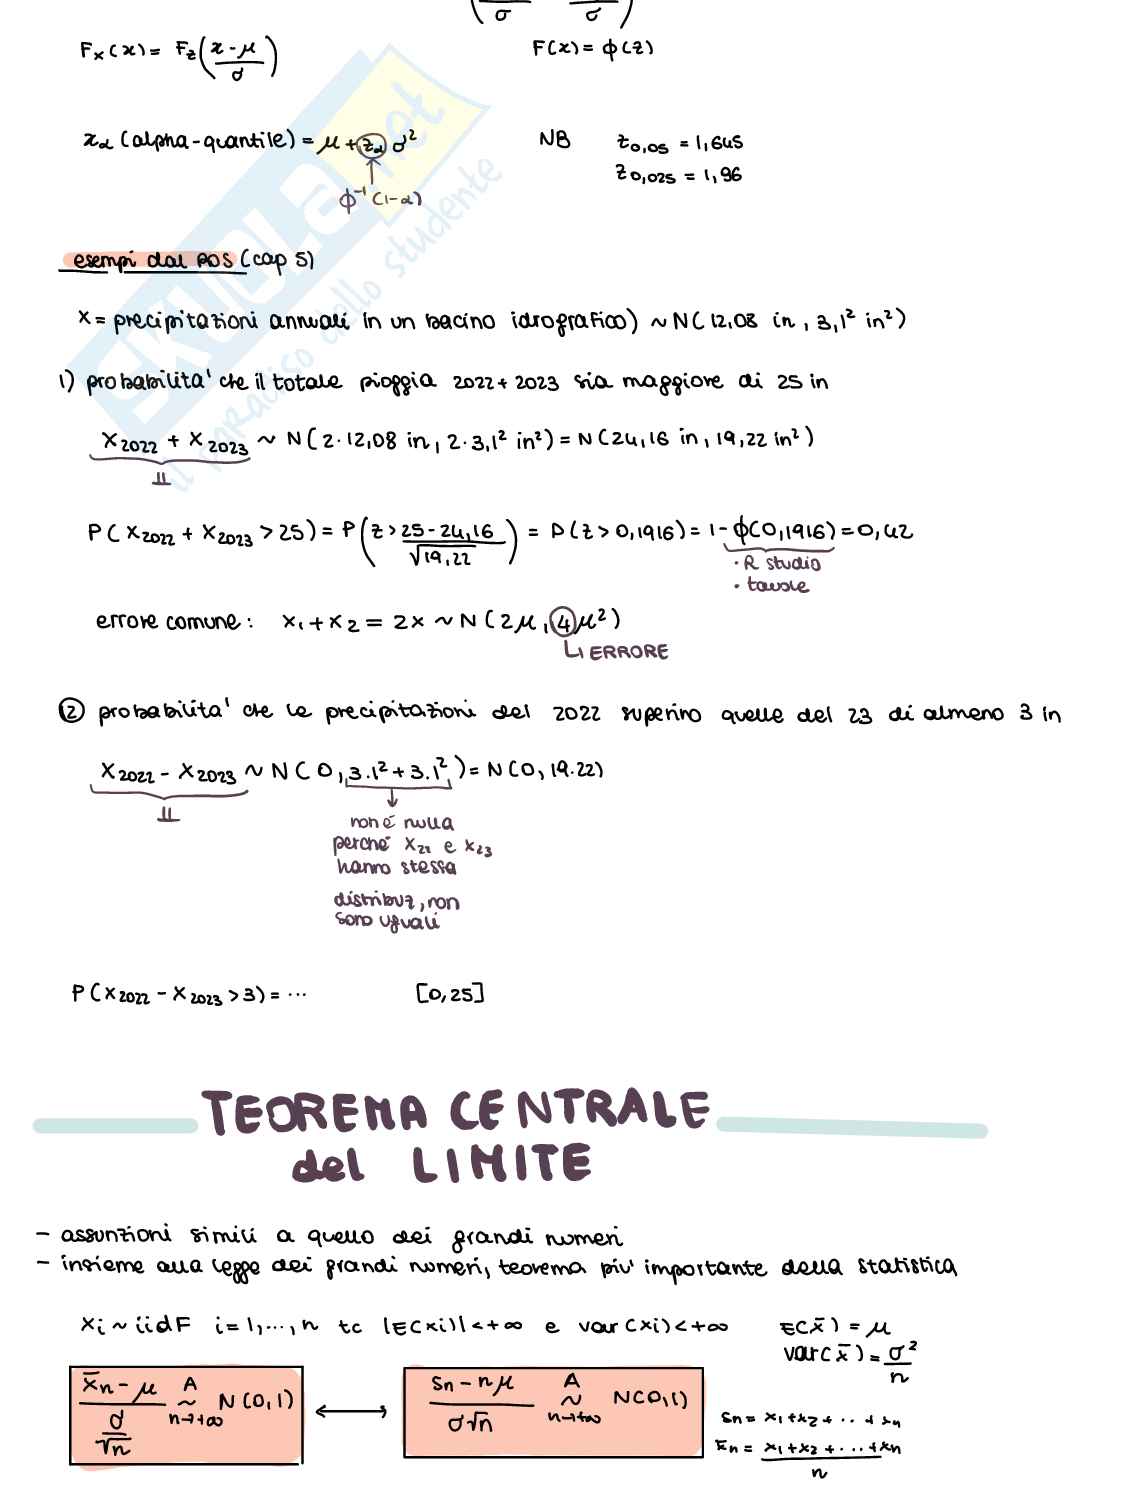 σ σ
Fx(x) = Fz(x-μ / σ) F(x) = φ(z)
xα (alpha-quantile) = μ + zα σ² NB z0,05 = 1,645
z0,025 = 1,96
φ⁻¹(1-α)
esempi dal ROS (cap 5)
X = precipitazioni annuali in un bacino idrografico) ~ N(12,08 in, 3,1² in²)
1) probabilita' che il totale pioggia 2022+2023 sia maggiore di 25 in
X2022 + X2023 ~ N(2·12,08 in, 2·3,1² in²) = N(24,16 in, 19,22 in²)
⫫
P(X2022 + X2023 > 25) = P(z > 25-24,16 / √19,22) = P(z > 0,1916) = 1-φ(0,1916) = 0,42
· R studio
· tavole
errore comune: x1+x2 = 2x ~ N(2μ, 4μ²)
↳ ERRORE
2) probabilita' che le precipitazioni del 2022 superino quelle del 23 di almeno 3 in
X2022 - X2023 ~ N(0, 3.1²+3.1²) = N(0, 19.22)
⫫
non é nulla
perché x22 e x23
hanno stessa
distribuz, non
sono uguali
P(X2022 - X2023 > 3) = ... [0,25]
TEOREMA CENTRALE
del LIMITE
- assunzioni simili a quello dei grandi numeri
- insieme alla legge dei grandi numeri, teorema piu' importante della statistica
Xi ~ iid F i=1,...,n tc |E(xi)| < +∞ e var(xi) < +∞ E(x̄) = μ
var(x̄) = σ²/n
x̄n - μ / σ/√n A ~ n→+∞ N(0,1) ⟷ Sn - nμ / σ√n A ~ n→+∞ N(0,1)
Sn = x1+x2+..+xn
x̄n = x1+x2+...+xn / n
SKUOLA.net
il paradiso dello studente